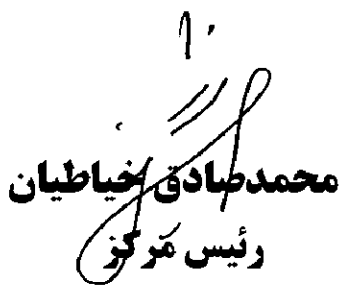 محمدصادق خیاطیان
رئیس مرکز